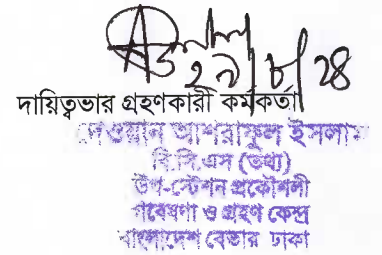 ২৯/৮/২৪
দায়িত্বভার গ্রহণকারী কর্মকর্তা
দেওয়ান আশরাফুল ইসলাম
বি.সি.এস (তথ্য)
উপ-স্টেশন প্রকৌশলী
গবেষণা ও গ্রহণ কেন্দ্র
বাংলাদেশ বেতার ঢাকা